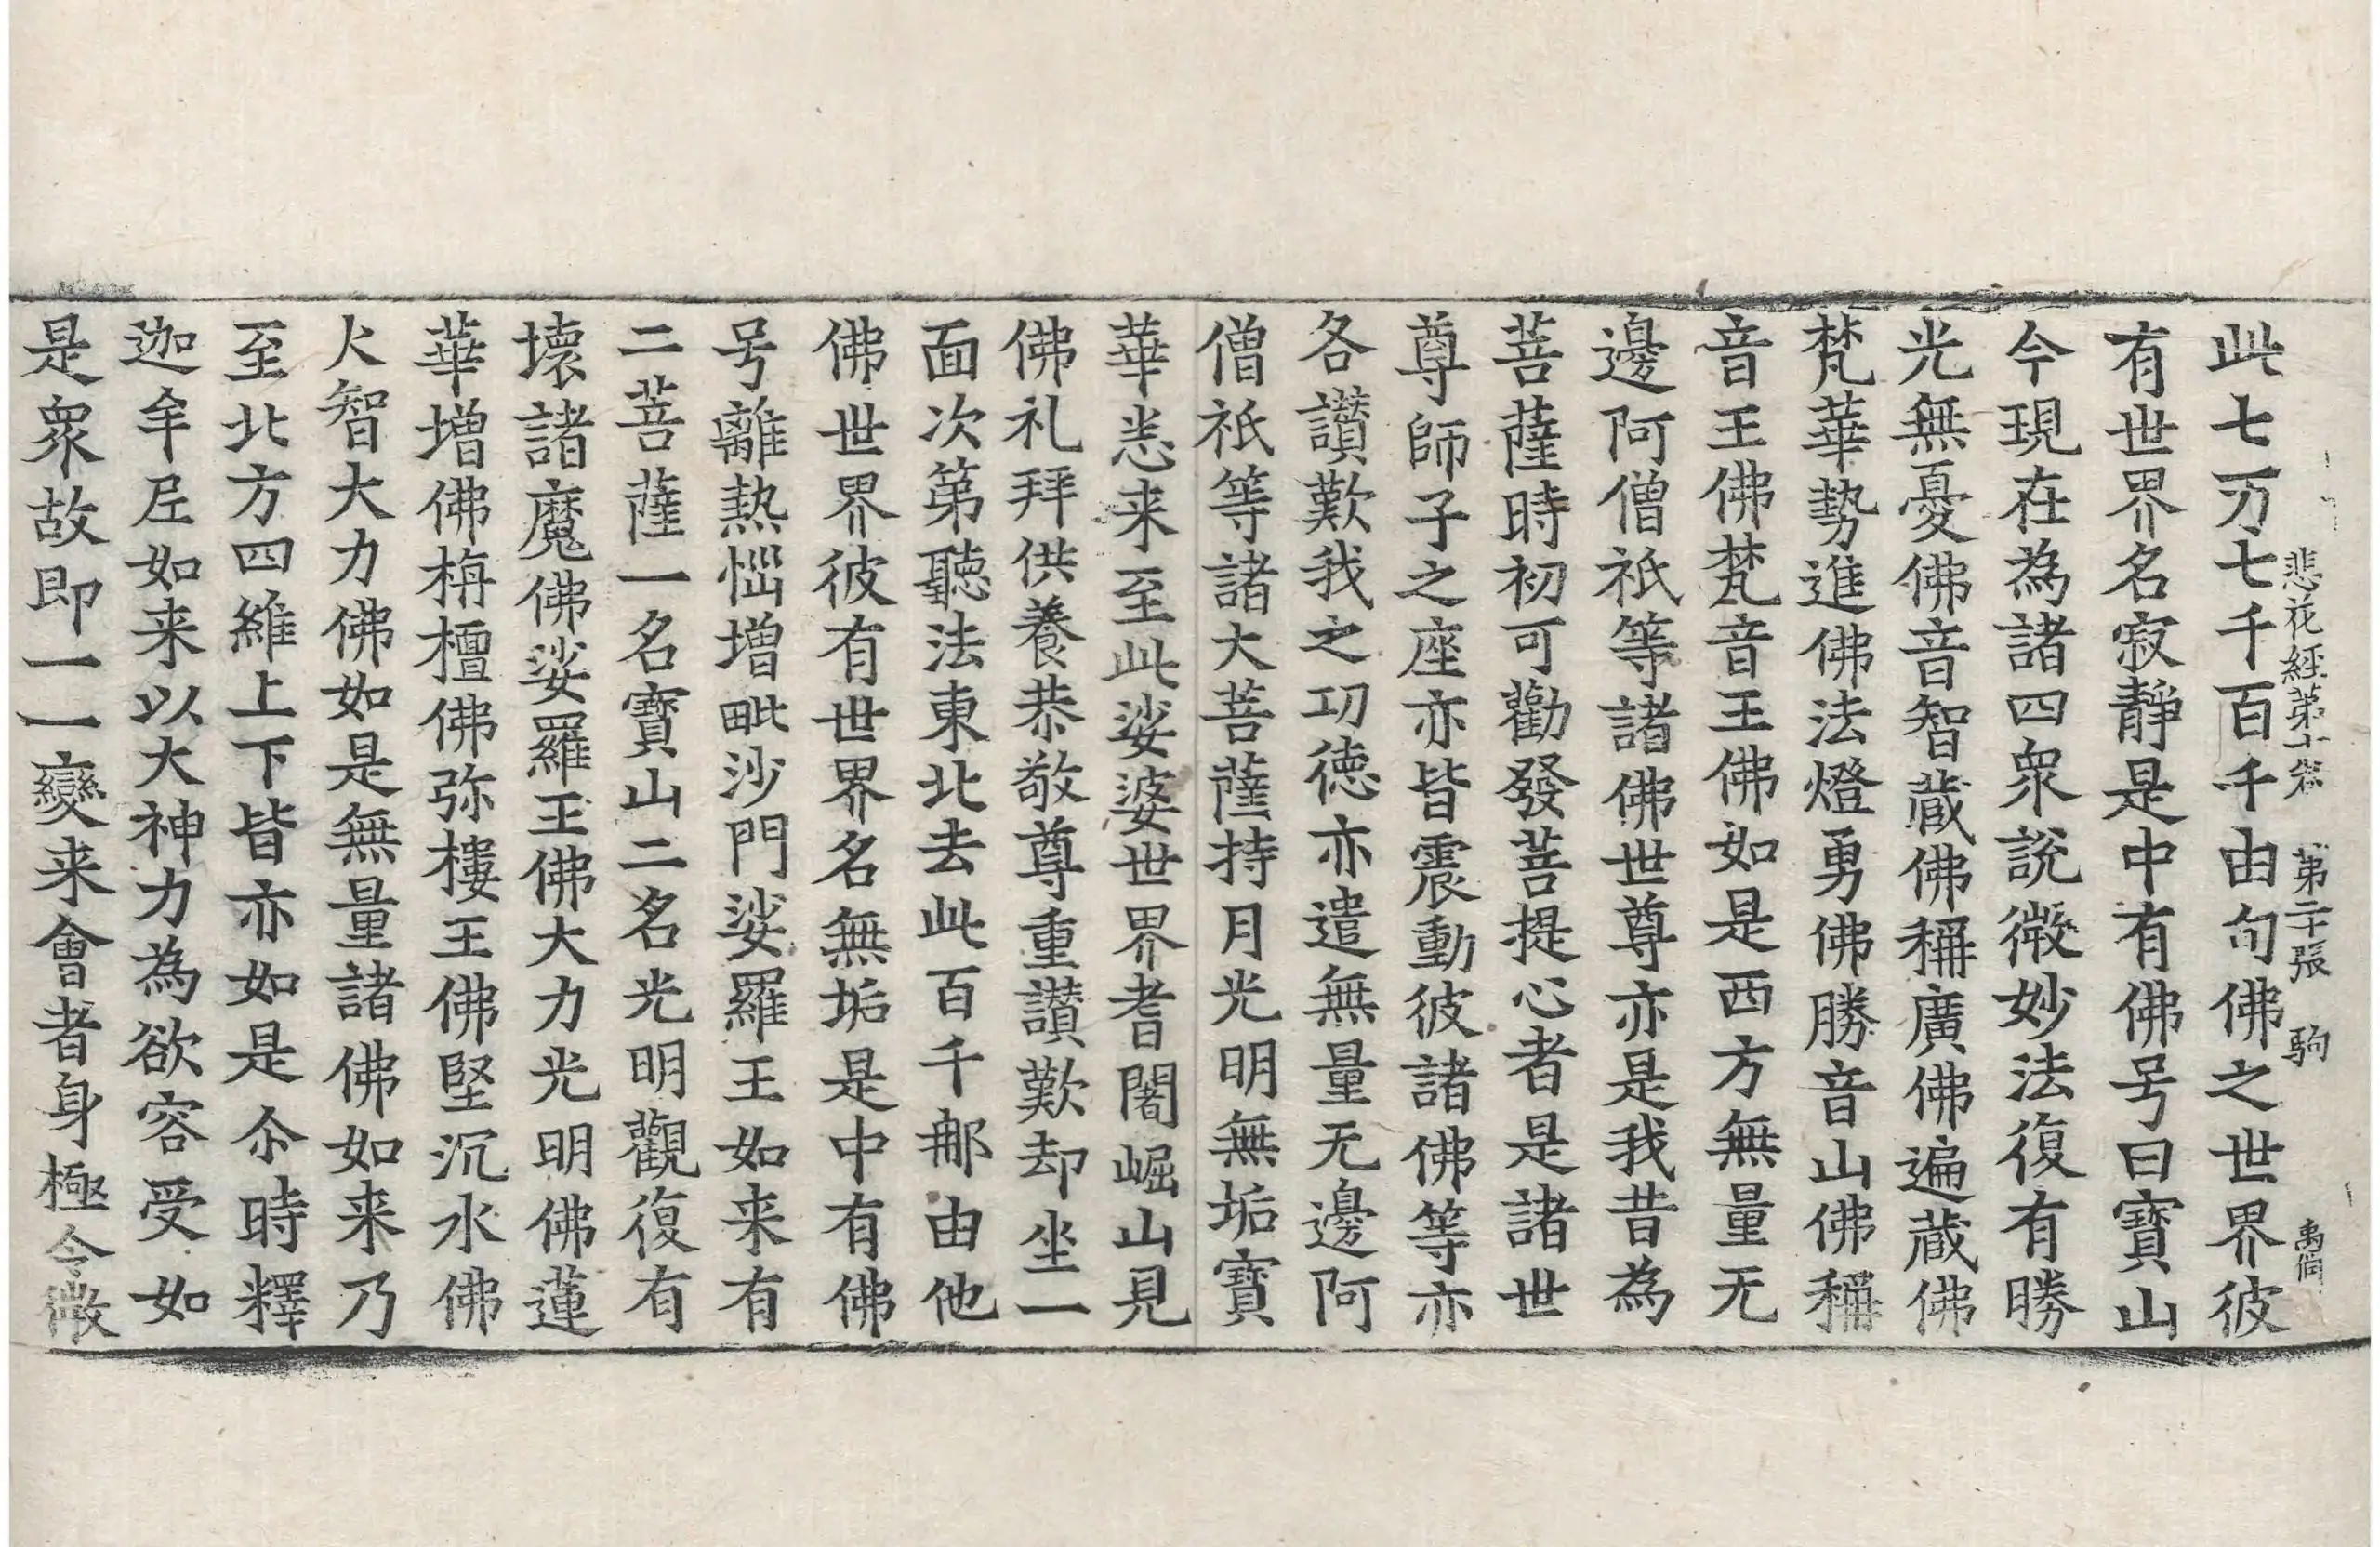 悲花經第十卷 第二十張 駒 禹偁
此七万七千百千由旬佛之世界彼
有世界名寂靜是中有佛号曰寶山
今現在為諸四衆說微妙法復有勝
光無憂佛音智蔵佛稱廣佛遍蔵佛
梵華勢進佛法燈勇佛勝音山佛稱
音王佛梵音王佛如是西方無量无
邊阿僧祇等諸佛世尊亦是我昔為
菩薩時初可勸發菩提心者是諸世
尊師子之座亦皆震動彼諸佛等亦
各讃歎我之㓛徳亦遣無量无邊阿
僧祇等諸大菩薩持月光明無垢寶
華悉来至此娑婆世界耆闍崛山見
佛礼拜供養恭敬尊重讃歎却坐一
面次第聽法東北去此百千那由他
佛世界彼有世界名無垢是中有佛
号離熱惱増毗沙門娑羅王如来有
二菩薩一名寶山二名光明觀復有
壊諸魔佛娑羅王佛大力光明佛蓮
華増佛栴檀佛弥樓王佛堅沉水佛
火智大力佛如是無量諸佛如来乃
至北方四維上下皆亦如是尒時釋
迦牟尼如来以大神力為欲容受如
是衆故即一一變来會者身極令微